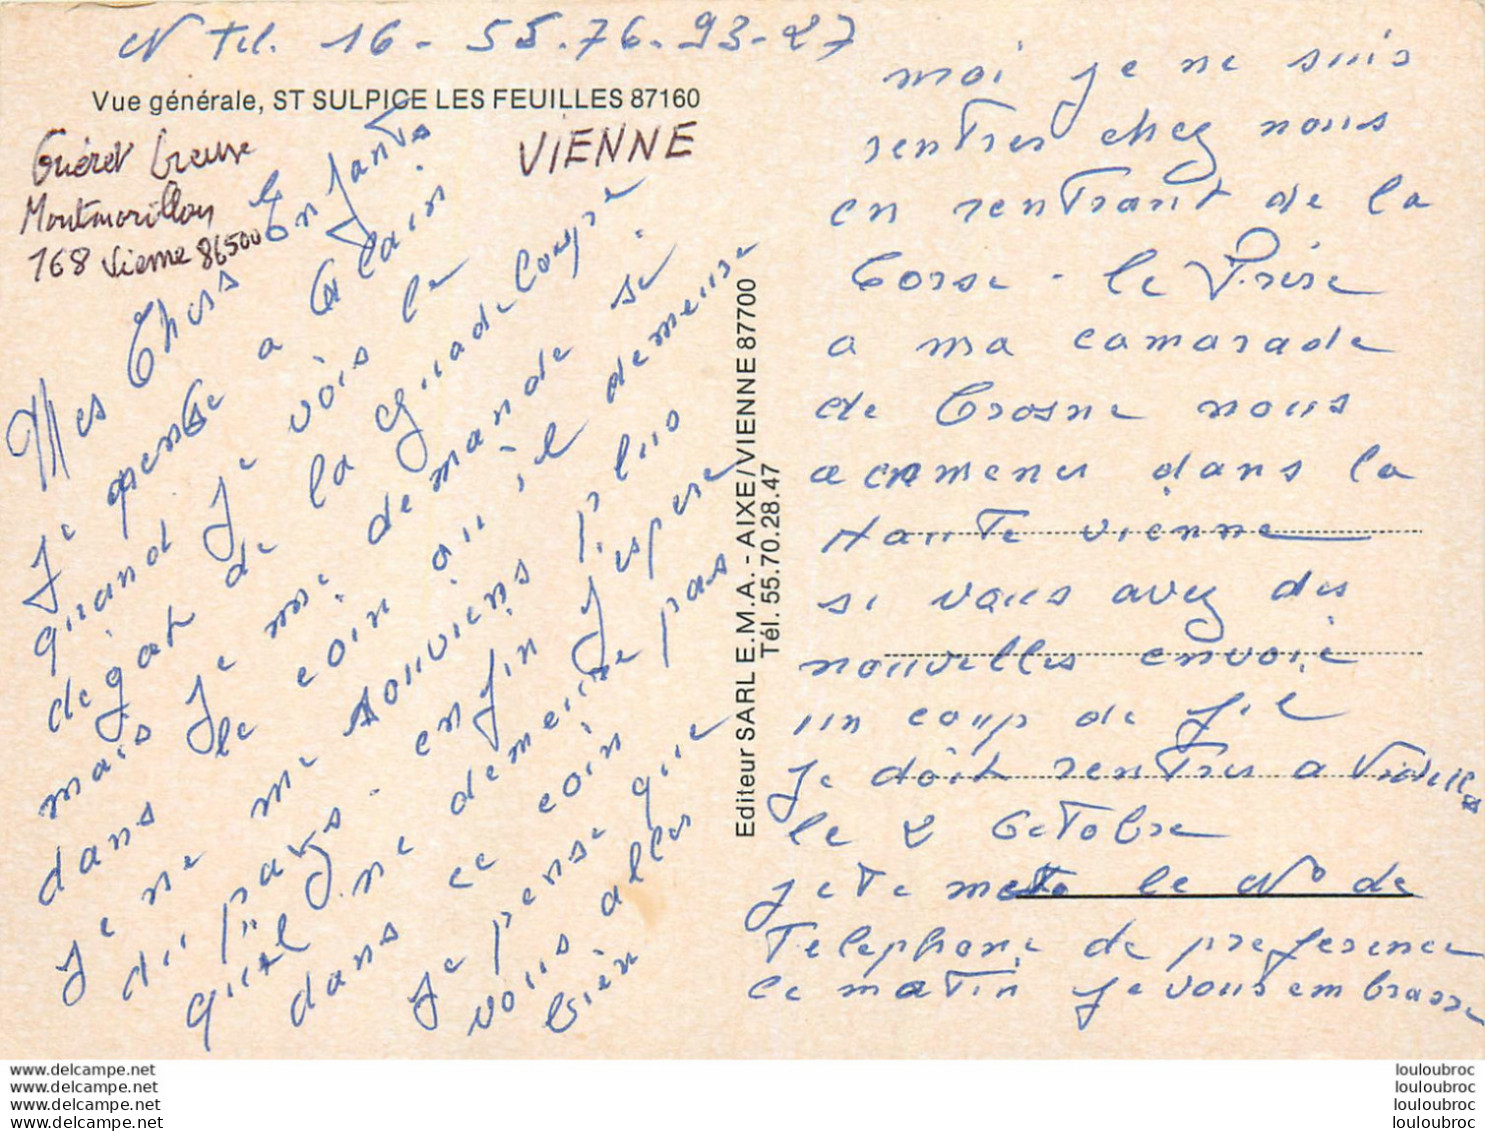 N Tel. 16 - 55.76-93-27
Vue générale, ST SULPICE LES FEUILLES 87160
VIENNE
Guéret Creuse
Montmorillon
168 Vienne 86500
Mes Chers Enfants
Je pense a Alain
quand Je vois le
dégat de la Guadeloupe
mais Je me demande si
dans le coin ou il demeure
Je ne me souviens plus
du pays. enfin J'espere
qu'il ne demeure pas
dans ce coin
Je pense que
vous aller
bièn
moi je ne suis
rentrer chez nous
en rentrant de la
Corse - le Frère
a ma camarade
de Crosne nous
a enmener dans la
Haute vienne
si vous avez des
nouvelles envoie
un coup de fil
je doit rentrer a
le 2 Octobre
je te mets le N° de
Telephone de preference
le matin je vous embrasse
Editeur SARL E.M.A. - AIXE/VIENNE 87700
Tél. 55.70.28.47
www.delcampe.net
www.delcampe.net
www.delcampe.net
www.delcampe.net
louloubroc
louloubroc
louloubroc
louloubroc